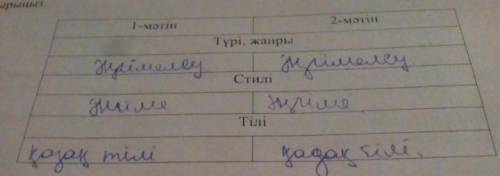 арыңыз.
1-мәтін 2-мәтін
Түрі, жанры
Әңгімелесу Әңгімелесу
Стилі
Тілі
қазақ тілі қазақ тілі.